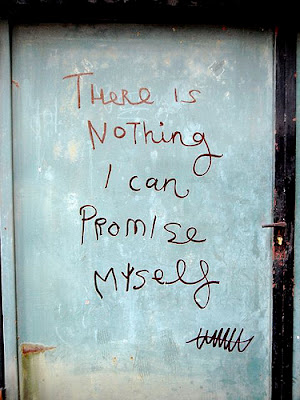 THere is
NOTHing
I can
PROMISe
MYSelf